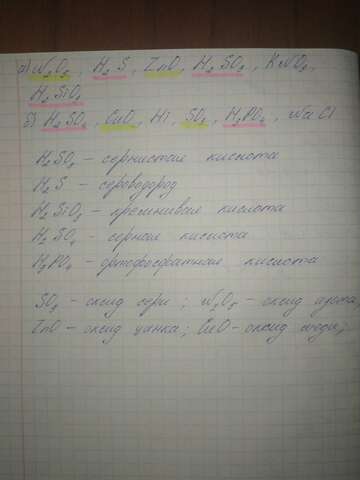 а) N₂O₅, H₂S, ZnO, H₂SO₃, KNO₃,
H₂SiO₃
б) H₂SO₄, CuO, HI, SO₃, H₃PO₄, NaCl
H₂SO₃ - сернистая кислота
H₂S - сероводород
H₂SiO₃ - кремниевая кислота
H₂SO₄ - серная кислота
H₃PO₄ - ортофосфатная кислота
SO₃ - оксид серы; N₂O₅ - оксид азота,
ZnO - оксид цинка; CuO - оксид меди;